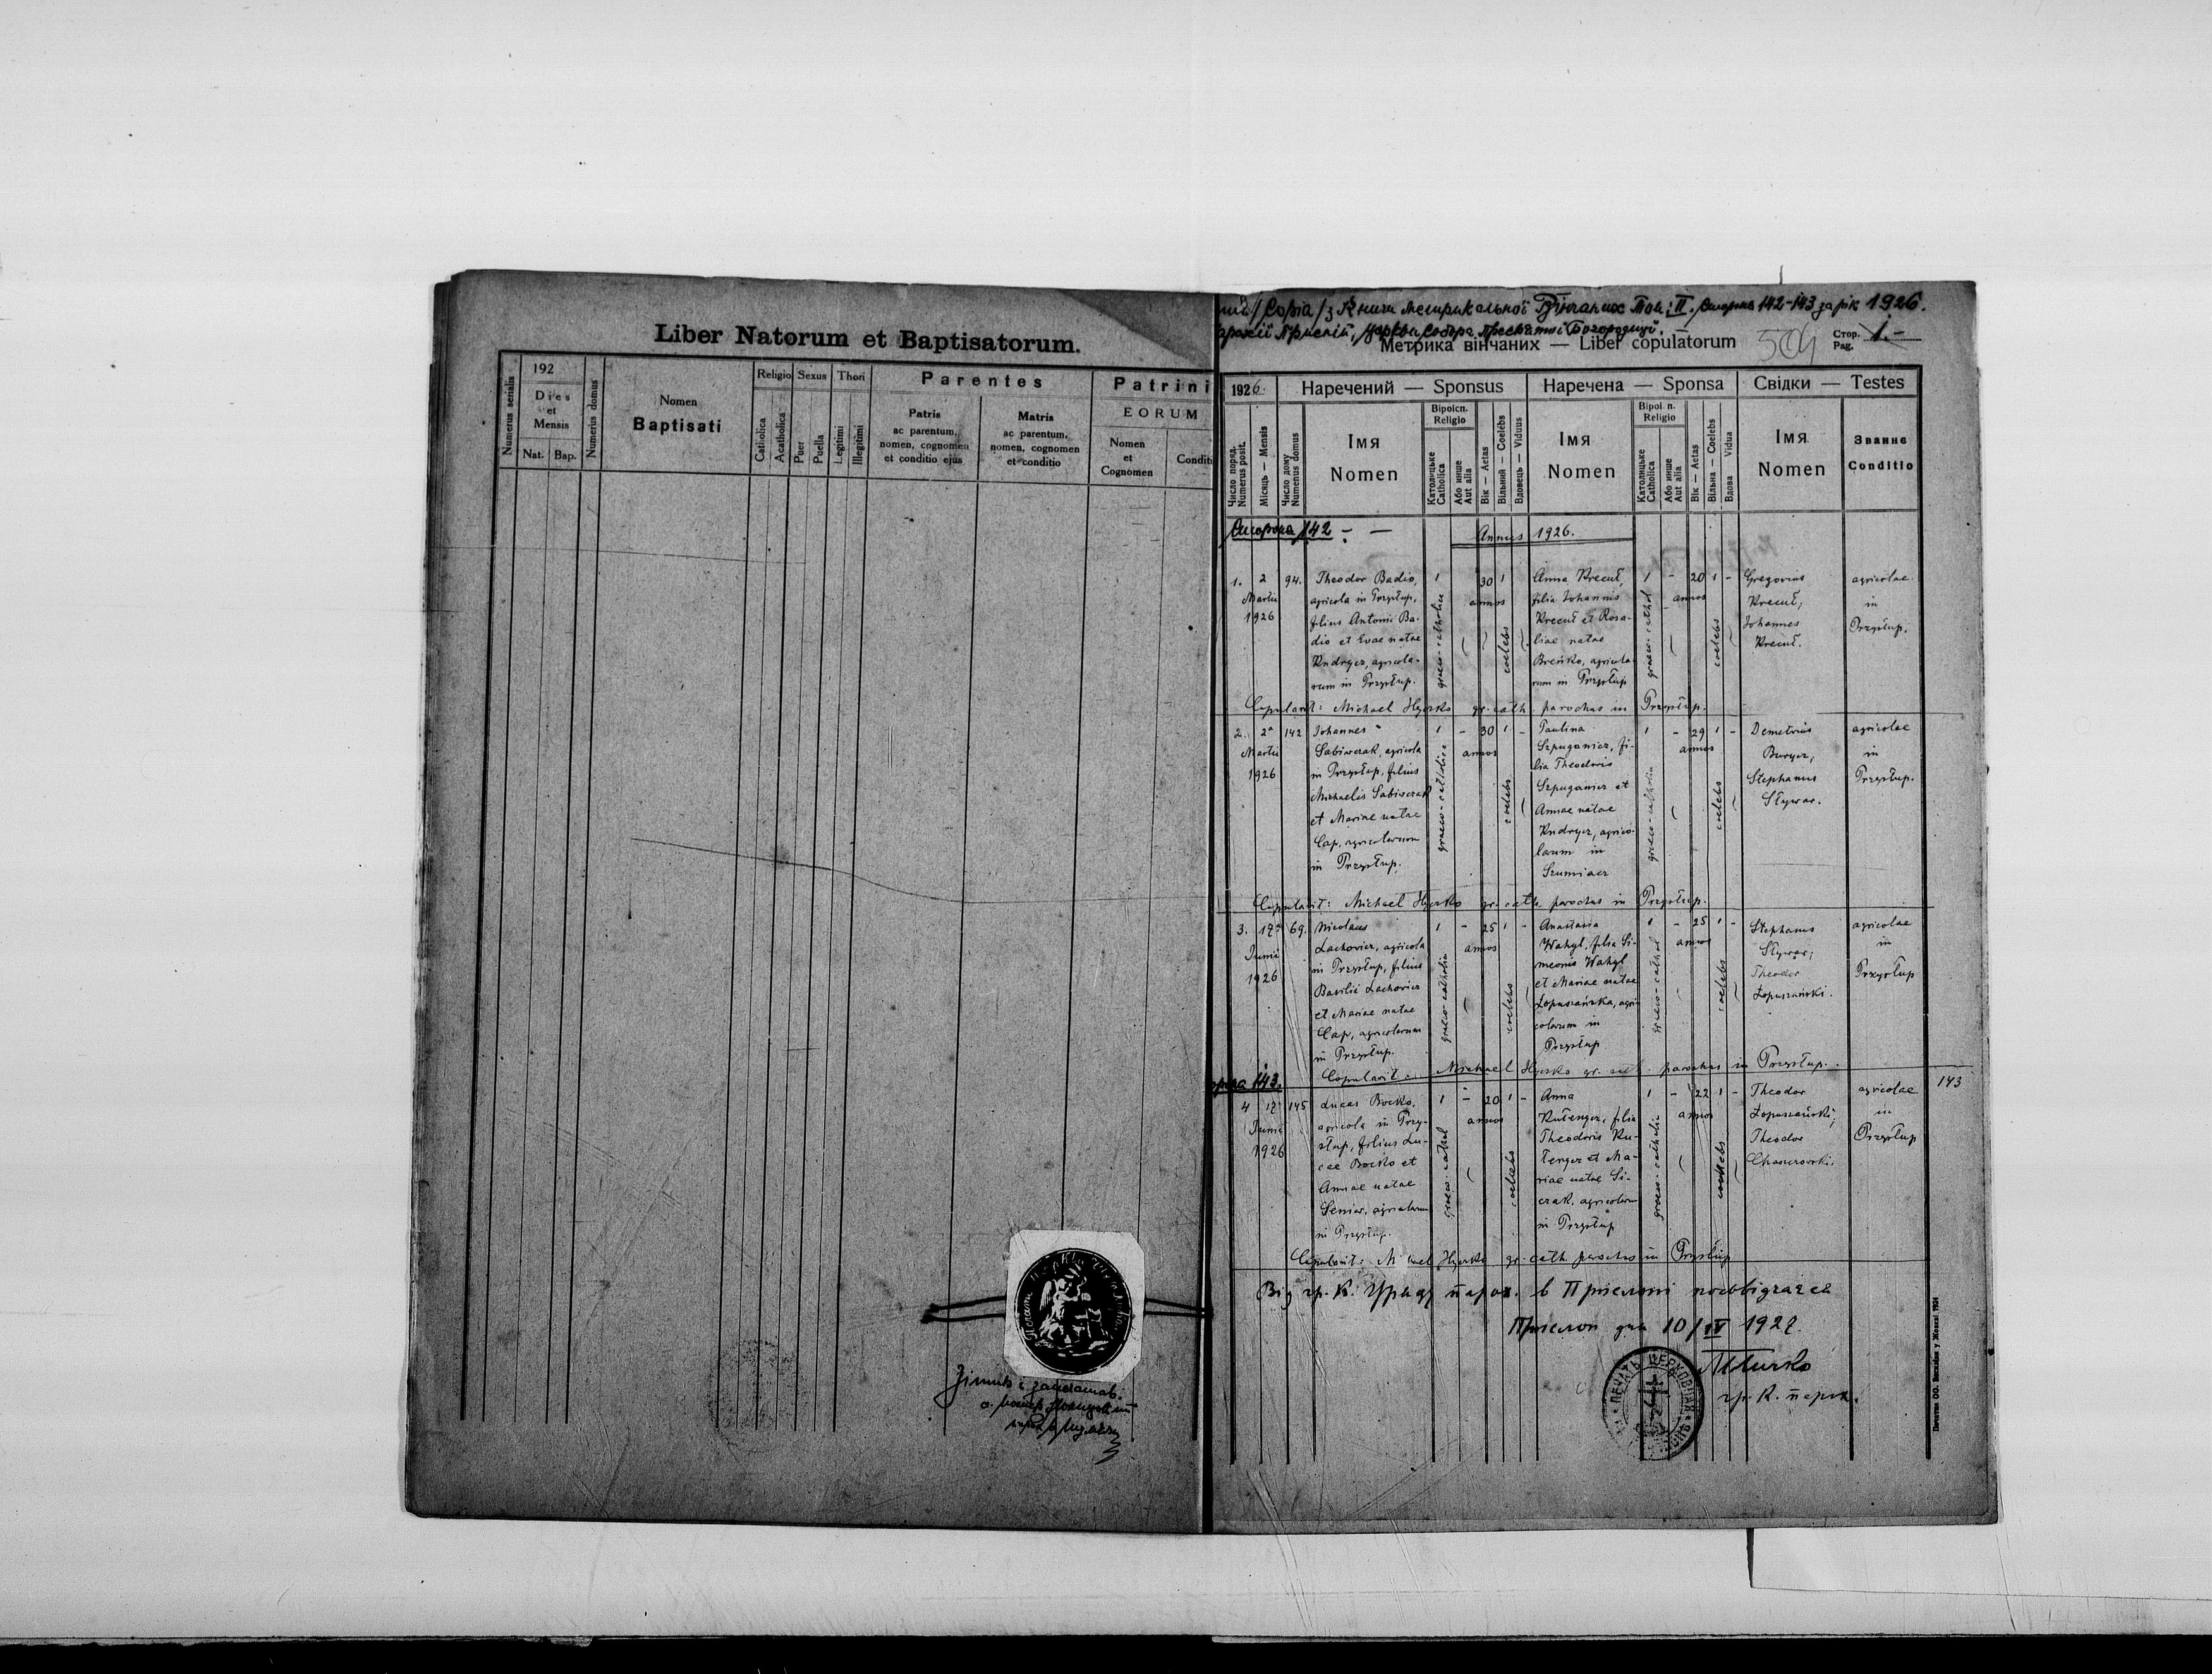 Liber Natorum et Baptisatorum.
Numerus serialis
192
Dies
et
Mensis
Nat. Bap.
Numerus domus
Nomen
Baptisati
Religio
Catholica
Acatholica
Sexus
Puer
Puella
Thori
Legitimi
Illegitimi
Parentes
Patris
ac parentum,
nomen, cognomen
et conditio ejus
Matris
ac parentum,
nomen, cognomen
et conditio
Patrini
EORUM
Nomen
et
Cognomen
Conditi
/Copia/ з Книги метрикальної Вінчаних Том: II. сторона 142-143 за рік 1926.
Церкви Собора Пресвятої Богородиці.
Метрика вінчаних — Liber copulatorum
504
Стор.
Pag.
1.-
1926.
Наречений — Sponsus
Наречена — Sponsa
Свідки — Testes
Число поряд.
Numerus posit.
Місяць — Mensis
Число дому
Numerus domus
Імя
Nomen
Віроісп.
Religio
Католицьке
Catholica
Або инше
Aut alia
Вік — Aetas
Вільний — Coelebs
Вдовець — Viduus
Імя
Nomen
Religio
Католицьке
Catholica
Або инше
Aut alia
Вік — Aetas
Вільна — Coelebs
Вдова Vidua
Імя
Nomen
Званнє
Conditio
Сторона 142 - —
Annus 1926.
1. 2 94. Theodor Badio, 1 30 1 Anna Krecuł, 1 - 20 1 - Gregorius agricolae
Martii agricola in Przysłup, annos filia Johannis annos Krecuł, in
1926 filius Antonii Ba- Krecuł et Rosa- Johannes Przysłup.
dio et Evae natae liae natae Krecuł.
Kudrycz, agricola- Breńko, agricola-
rum in Przysłup. rum in Przysłup
graeco-catholica coelebs graeco-cathol coelebs
Copulavit: Michael Hycko gr. cath. parochus in Przysłup.
2. 2ª 142 Johannes 1 - 30 1 - Paulina 1 - 29 1 - Demetrius agricolae
Martii Sabiwczak, agricola annos Szpuganicz, fi- annos Burycz, in
1926 in Przysłup, filius lia Theodoris Stephanus Przysłup.
Michaelis Sabiwczak Szpuganicz et Sływar.
et Mariae natae Annae natae
Cap, agricolarum Kudrycz, agrico-
in Przysłup. larum in
Szumiacz
graeco-catholica coelebs graeco-catholica coelebs
Copulavit: Michael Hycko gr. cath. parochus in Przysłup.
3. 17ª 69. Nicolaus 1 - 25 1 - Anastasia 1 - 25 1 - Stephanus agricolae
Junii Lachowicz, agricola annos Wahyl, filia Si- annos Sływar; in
1926 in Przysłup, filius meonis Wahyl Theodor Przysłup
Basilii Lachowicz et Mariae natae Łopuszański.
et Mariae natae Łopuszańska, agri-
Cap, agricolarum colarum in
in Przysłup. Przysłup
graeco-catholica coelebs graeco-cathol coelebs
Copulavit: Michael Hycko gr. cath. parochus in Przysłup.
143.
143
4 17 145 Lucas Boćko, 1 - 20 1 - Anna 1 - 22 1 - Theodor agricolae
Junii agricola in Przy- annos Kułenycz, filia annos Łopuszański, in
1926 słup, filius Lu- Theodoris Ku- Theodor Przysłup
cae Boćko et łenycz et Ma-
Annae natae riae natae Si-
Seniw, agricolarum czak, agricolarum
in Przysłup. in Przysłup
graeco-cathol coelebs graeco-catholica coelebs
Copulavit: Hycko gr. cath. parochus in Przysłup
Від гр. к. Уряду парох. в
дня 10/IV 1927.
гр. к. парох.
ПЕЧАТЬ ЦЕРКОВНАЯ